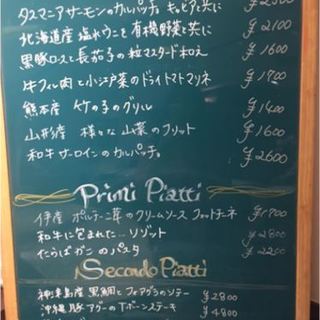 タスマニアサーモンのカルパッチョ キャビアと共に ¥2300
北海道産 塩水ウニと有機野菜と共に ¥2100
黒豚ロースと長茄子の粒マスタード和え ¥1600
牛フィレ肉と小江戸菜のドライトマトマリネ ¥1900
熊本産 竹の子のグリル ¥1400
山形産 様々な山菜のフリット ¥1600
和牛サーロインのカルパッチョ。 ¥2600
Primi Piatti
伊産 ポルチーニ茸のクリームソース フェットチーネ ¥1900
和牛に包まれた…リゾット ¥2800
たらばガニのパスタ ¥2200
Secondo Piatti
神津島産 黒鯛とフォアグラのソテー ¥2800
沖縄豚アグーのTボーンステーキ ¥4800